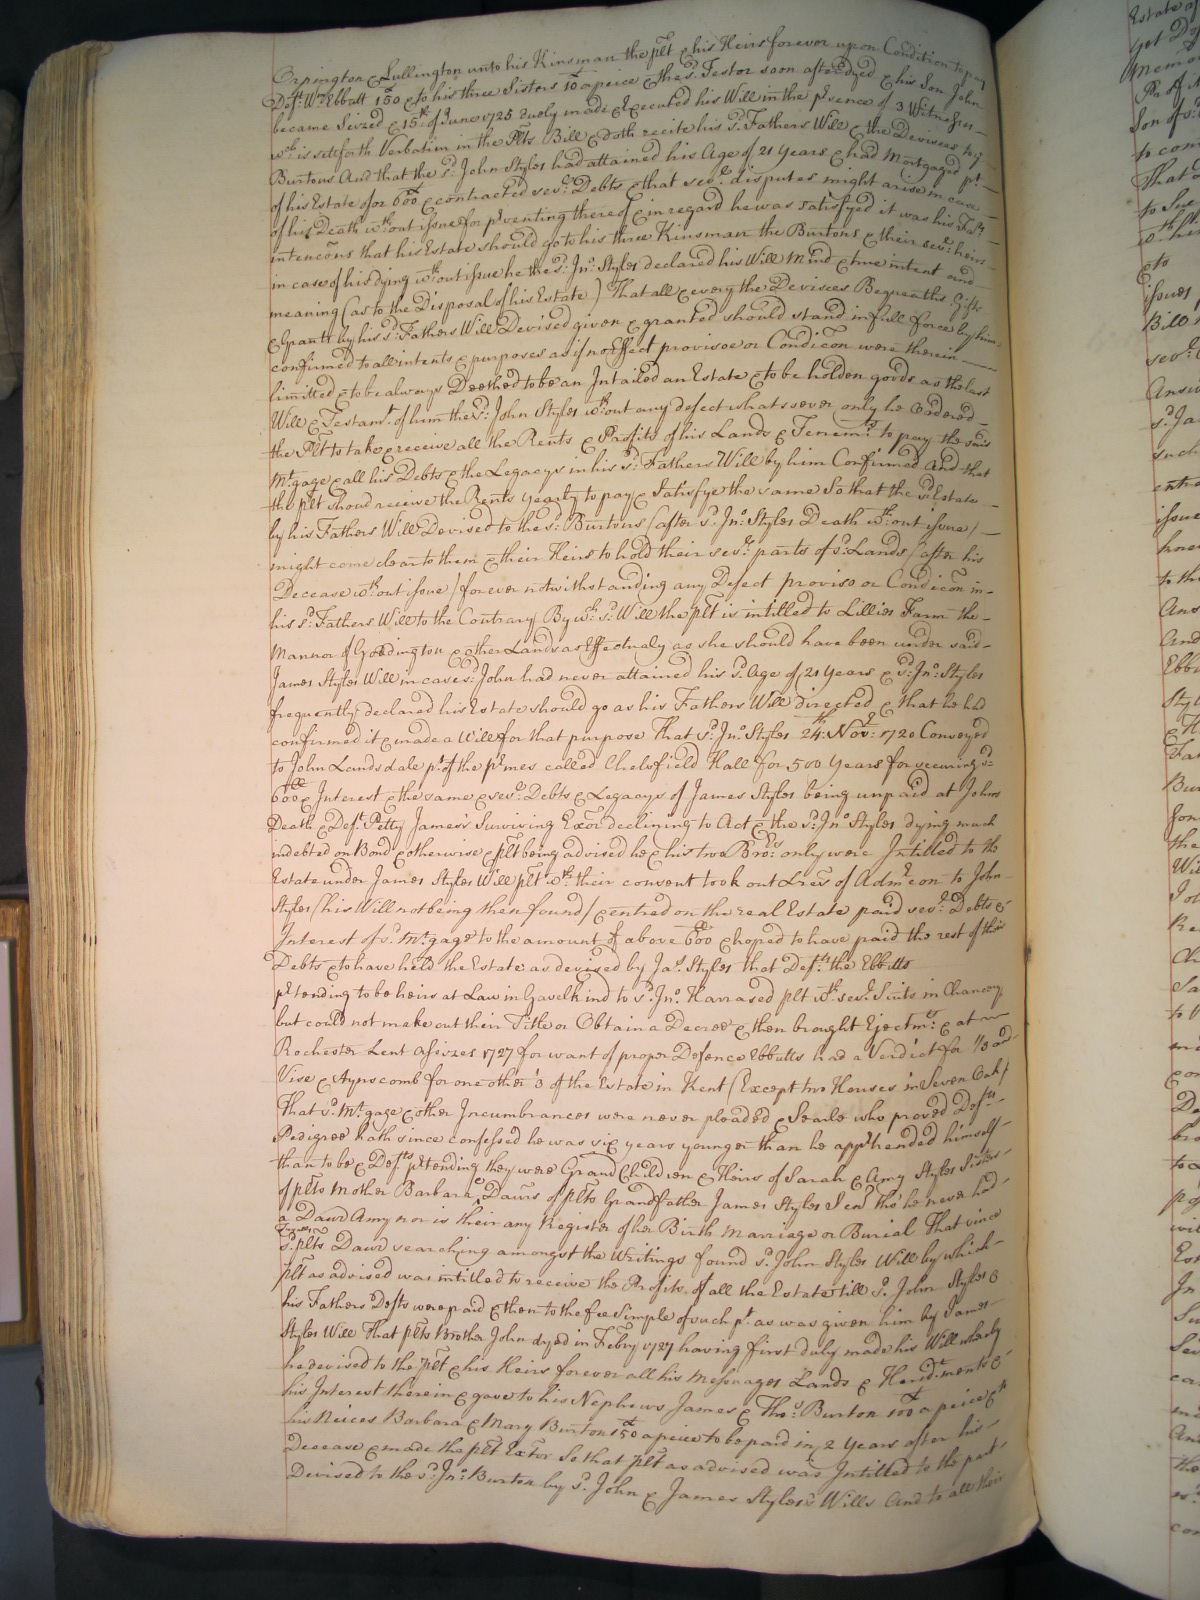 Orpington & Lullington unto his Kinsman the plt & his Heirs forever upon Condition to pay
Deft Wm Ebbutt 150 & to his three Sisters 10£ apeice & the sd Testor soon after dyed & his Son John
became Seized & 15th of June 1725 duely made & Executed his Will in the prsence of 3 Witnesses
wch is setforth Verbatim in the Plts Bill & doth recite his sd Fathers Will & the Devisees to ye
Burtons And that the sd John Styles had attained his Age of 21 Years & had Mortgaged pt
of his Estate for 600£ & contracted sevll Debts & that sevll disputes might arise in case
of his Death wthout issue for prventing thereof & in regard he was satisfyed it was his Fathrs
intencons that his Estate should go to his three Kinsman the Burtons & their sevll heirs
in case of his dying wthout issue he the sd Jno Styles declared his Will Mind & true intent and
meaning (as to the Disposal of his Estate) That all & every the Devisees Bequeaths Gifts
& Grants by his sd Fathers Will Devised given & granted should stand in full force by him
confirmed to all intents & purposes as if no Effect provisoe or Condicon were therein
limitted & to be always Deemed to be an Intailed an Estate & to be holden good as the last
Will & Testamt of him the sd John Styles wthout any defect whatsoever only he Ordered
the Plt to take & receive all the Rents & Profits of his Lands & Tenemts to pay the said
Mtgage & all his Debts & the Legacys in his sd Fathers Will by him Confirmed And that
the plt shoud receive the Rents yearly to pay & Satisfye the same So that the sd Estate
by his Fathers Will Devised to the sd Burtons (after sd Jno Styles Death wthout issue)
might come clear to them & their Heirs to hold their sevll parts of sd Lands (after his
Decease wthout issue) forever notwithstanding any Defect proviso or Condicon in
his sd Fathers Will to the Contrary By wch sd Will the plt is intitled to Lillies Farm the
Mannor of Goddington & other Lands as Effectualy as she should have been under said
James Styles Will in case sd John had never attained his sd Age of 21 Years & sd Jno Styles
frequently declared his Estate should go as his Fathers Will directed & that he had
confirmed it & made a Will for that purpose That sd Jno Styles 24th Novr 1720 Conveyed
to John Landsdale pt of the prmes called Chelsfield Hall for 500 Years for securing sd
600£ & Interest & the same & sevll Debts & Legacys of James Styles being unpaid at Johns
Death & Deft Petty James's Surviving Exor declining to Act & the sd Jno Styles dying much
indebted on Bond & otherwise & plt being advised he & his two Bros only were Intitled to the
Estate under James Styles Will plt wth their consent took out Lres of Admcon to John
Styles (his Will not being then found) & entred on the real Estate paid sevll Debts &
Interest of sd Mtgage to the amount of above 600£ & hoped to have paid the rest of the
Debts & to have held the Estate as devised by Jas Styles that Defts the Ebbutts
prtending to be heirs at Law in Gavelkind to sd Jno Harrased plt wth sevll Suits in Chancery
but could not make out their Title or Obtain a Decree & then brought Ejectmts & at
Rochester Lent Assizes 1727 for want of proper Defence Ebbutts had a Verdict for 1/3 and
Vise & Aynscomb for one other 3 of the Estate in Kent (Except two Houses in Seven Oak)
That sd Mtgage & other Incumbrances were never pleaded & Searle who proved Defts
Pedigree hath since confessed he was six years younger than he apprhended himself
than to be & Defts prtending they were Grand Children & Heirs of Sarah & Amy Styles Sisters
of plts Mother Barbara & Daurs of plts Grandfather James Styles Senr tho' he never had
a Daur Amy nor is their any Register of her Birth Marriage or Burial That since
sd plts Daur searching amongst the Writings found sd John Styles Will by which
plt as advised was intitled to receive the Profits of all the Estate till sd John Styles &
his Fathers Debts were paid & then to the fee Simple of such pt as was given him by James
Styles Will That plts Brother John dyed in Febry 1727 having first duly made his Will whereby
he devised to the plt & his Heirs forever all his Messuages Lands & Heriditments &
his Interest therein & gave to his Nephews James & Thos Burton 100£ a peice &
his Neices Barbara & Mary Burton 150£ apeice to be paid in 2 Years after his
Decease & made the plt Extor So that plt as advised was Intitled to the part
Devised to the sd Jno Burton by sd John & James Styles's Wills And to all their